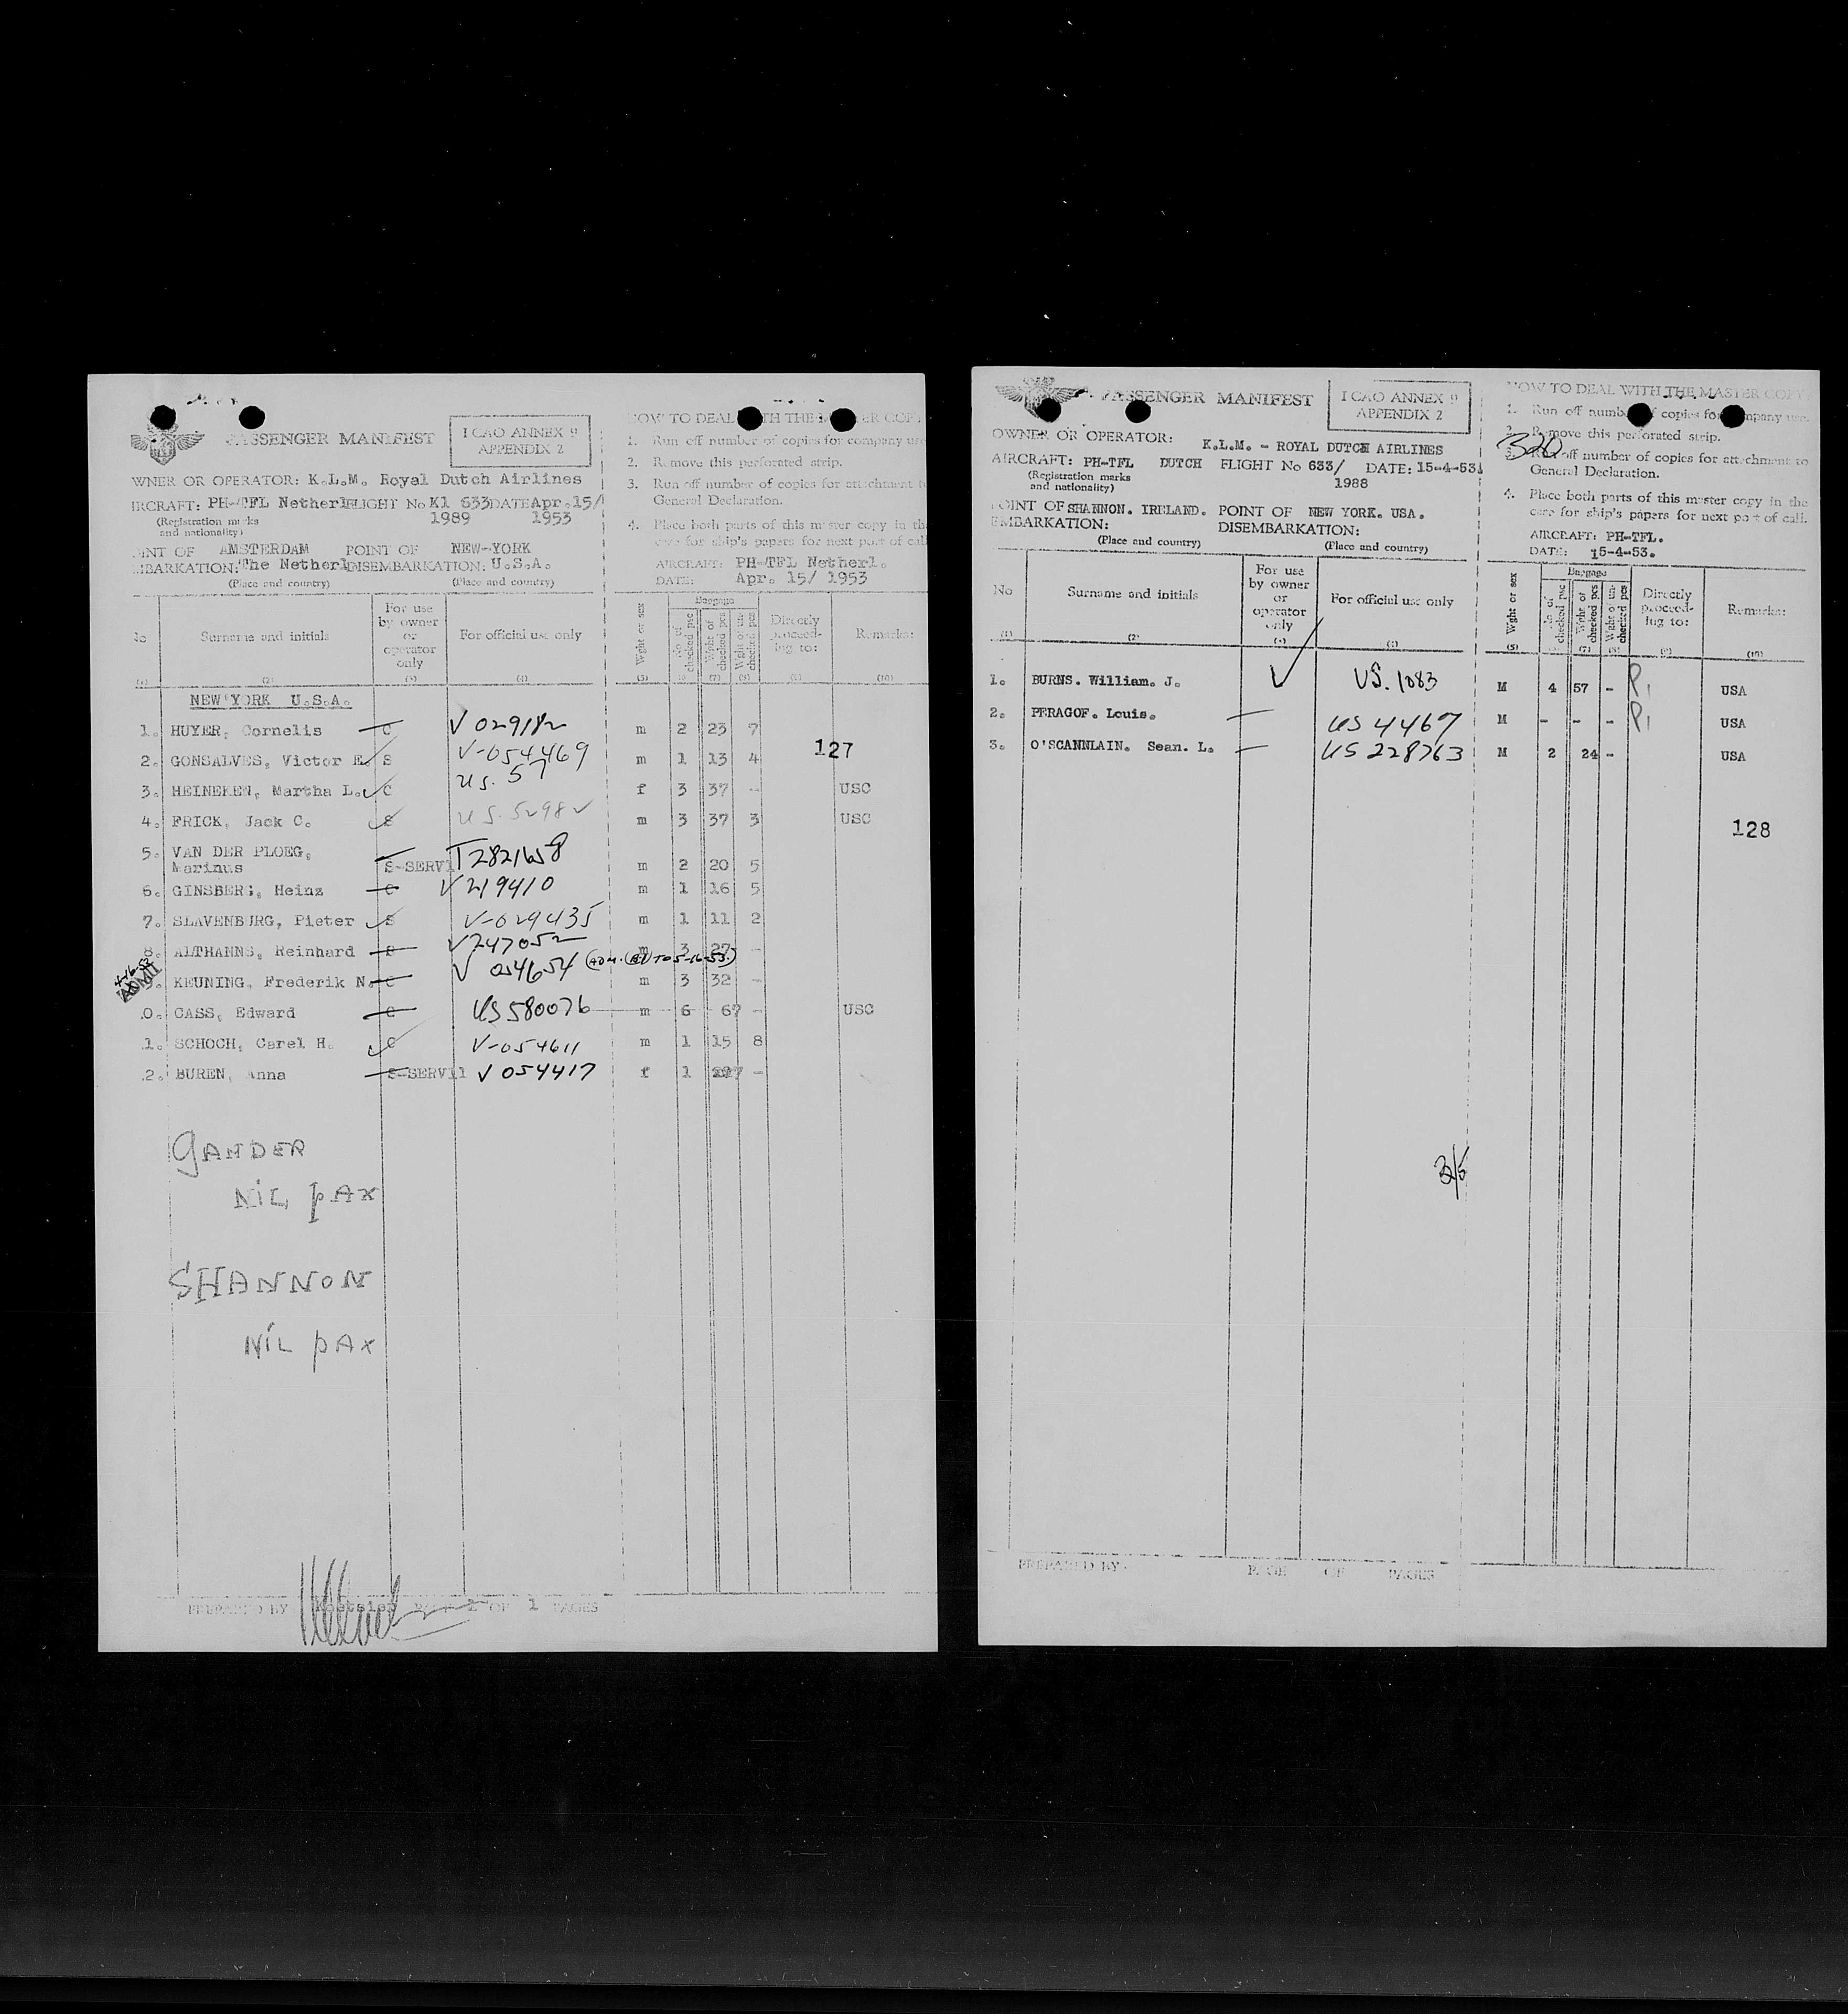 PASSENGER MANIFEST
I CAO ANNEX 9
APPENDIX 2
WNER OR OPERATOR: K.L.M. Royal Dutch Airlines
IRCRAFT: PH-TFL Netherl FLIGHT No Kl 633 DATE Apr.15/
(Registration marks and nationality) 1989 1953
INT OF AMSTERDAM POINT OF NEW-YORK
MBARKATION: The Netherl DISEMBARKATION: U.S.A.
(Place and country) (Place and country)
HOW TO DEAL WITH THE MASTER COPY
1. Run off number of copies for company use
2. Remove this perforated strip.
3. Run off number of copies for attachment to
General Declaration.
4. Place both parts of this master copy in the
case for ship's papers for next port of call
AIRCRAFT: PH-TFL Netherl.
DATE: Apr. 15/ 1953
No Surname and initials For use by owner or operator only For official use only Wght or sex Baggage No of checked pcs Wght of checked pcs Wght of un-checked pcs Directly proceed-ing to: Remarks:
(1) (2) (3) (4) (5) (6) (7) (8) (9) (10)
NEW YORK U.S.A.
1. HUYER, Cornelis C V 029182 m 2 23 7
127
2. GONSALVES, Victor E. S V-054469 m 1 13 4
3. HEINEKEN, Martha L. C US. 57 f 3 37 - USC
4. FRICK, Jack C. S US. 5298 m 3 37 3 USC
5. VAN DER PLOEG,
Marinus S-SERV1 T2821658 m 2 20 5
6. GINSBERG, Heinz C V 219410 m 1 16 5
7. SLAVENBURG, Pieter S V-029435 m 1 11 2
8. ALTHANNS, Reinhard S V247052 m 3 27 -
4-16-53
ADMIT
9. KEUNING, Frederik N. C V 054654 (ADM. (B1) TO 5-16-53.) m 3 32 -
.0. CASS, Edward C US 580076 m 6 67 - USC
.1. SCHOCH, Carel H. C V-054611 m 1 15 8
.2. BUREN, Anna S-SERV11 V 054417 f 1 -
GANDER
NIL pAX
SHANNON
NIL pAX
PREPARED BY Koetsier PAGE 1 OF 1 PAGES
PASSENGER MANIFEST
I CAO ANNEX 9
APPENDIX 2
OWNER OR OPERATOR: K.L.M. - ROYAL DUTCH AIRLINES
AIRCRAFT: PH-TFL DUTCH FLIGHT No 633/ DATE: 15-4-53.
(Registration marks and nationality) 1988
POINT OF SHANNON. IRELAND. POINT OF NEW YORK. USA.
EMBARKATION: DISEMBARKATION:
(Place and country) (Place and country)
HOW TO DEAL WITH THE MASTER COPY
1. Run off number of copies for company use.
2. Remove this perforated strip.
320
3. Run off number of copies for attachment to
General Declaration.
4. Place both parts of this master copy in the
case for ship's papers for next port of call.
AIRCRAFT: PH-TFL.
DATE: 15-4-53.
No Surname and initials For use by owner or operator only For official use only Wght or sex Baggage No of checked pcs Wght of checked pcs Wght of un-checked pcs Directly proceed-ing to: Remarks:
(1) (2) (3) (4) (5) (6) (7) (8) (9) (10)
1. BURNS. William. J. US. 1083 M 4 57 - P1 USA
2. PERAGOF. Louis. US 4467 M - - - P1 USA
3. O'SCANNLAIN. Sean. L. US 228763 M 2 24 - USA
128
PREPARED BY PAGE OF PAGES